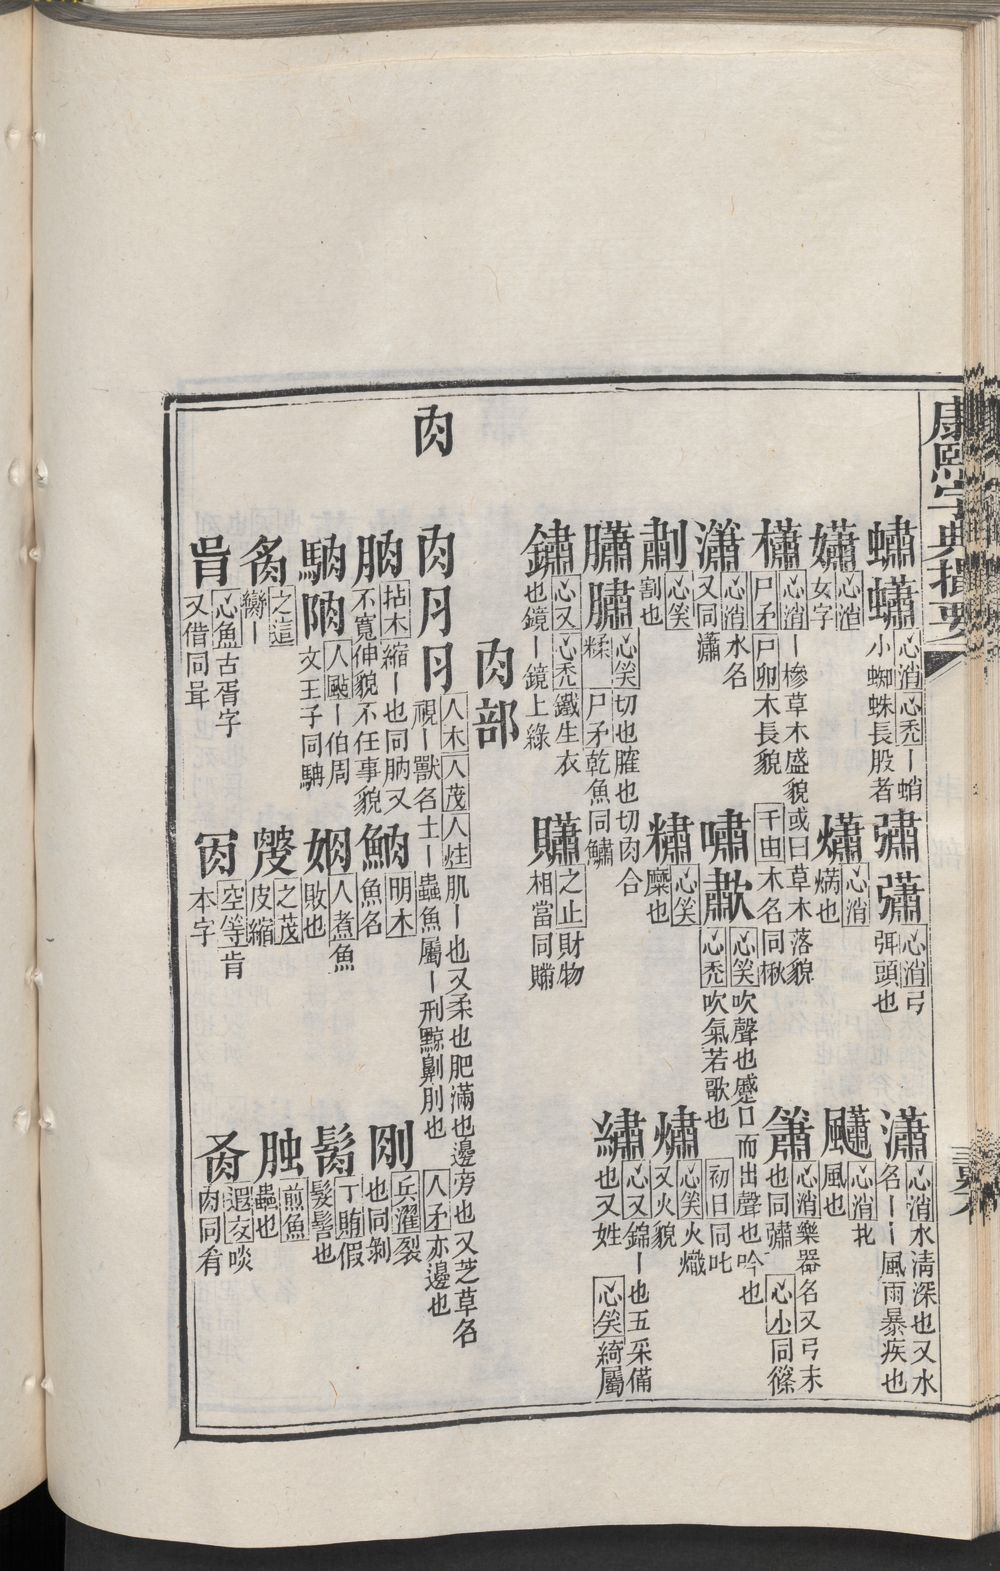 康熙字典撮要
蠨蟰 心消 心禿 ー蛸小蜘蛛長股者
彇彇 心消 弓弭頭也
瀟 心消 水淸深也又水名ーー風雨暴疾也
嬌 心消 女字
熽 心消 熵也
飍 心消 風也
橚 心消 ー椮草木盛貌或曰草木落貌 尸矛 尸卯 木長貌 千由 木名同楸
簫 心消 樂器名又弓末也同彇 心小 同篠
潚 心消 水名又同瀟
嘯歗 心笑 吹聲也蹙口而出聲也吟也 心禿 吹氣若歌也 初日 同叱
心笑 割也
䊥 心笑 糜也
熽 心笑 火熾又火貌
膅膅 心笑 切也膗也切肉合糅 尸矛 乾魚同鱐
繡 心又 錦ー也五采備也又姓 心笑 綺屬
鏽 心又 心禿 鐵生衣也鏡ー鏡上綠
之止 財物相當同
肉部
肉
肉月⺼ 人木 人茂 人炷 肌ー也又柔也肥滿也邊旁也又芝草名視ー獸名土ー蟲魚屬ー刑黥劓刖也 人矛 亦邊也
朒 拈木 縮ー也同肭又不寬伸貌不任事貌
䱥 明木 魚名
剮 兵濯 裂也同剝
人颰 ー伯周文王子同
人煮 魚敗也
丁賄 假髮髻也
之這 臠ー
之茂 皮縮
煎魚 蟲也
肙 心魚 古胥字又借同曷
肎 空等 肯本字
肴 遐交 啖肉同肴